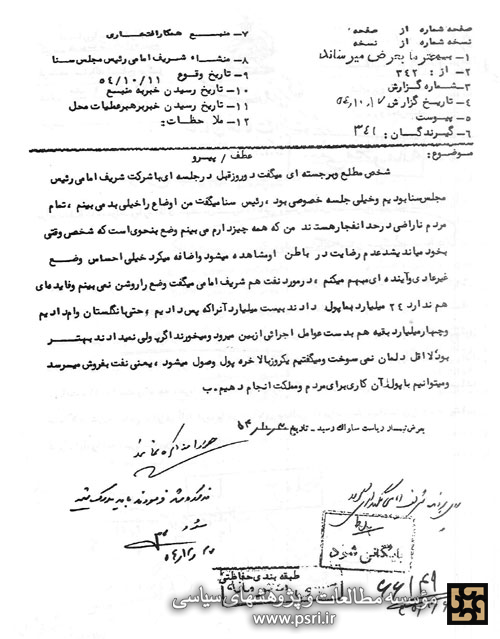 صفحه شماره    از    صفحه
نسخه شماره    از    نسخه
۱- بیعتر ما بعرض میرساند
۲- از: ۳۴۲
۳- شماره گزارش
۴- تاریخ گزارش
۵- پیوست
۶- گیرندگان: ۳۴۱
۷- منبع همکار افتخاری
۸- منشاء شریف امامی رئیس مجلس سنا
۹- تاریخ وقوع ۵۴/۱۰/۱۱
۱۰- تاریخ رسیدن خبر به منبع
۱۱- تاریخ رسیدن خبر بر هبر عملیات محل
۱۲- ملاحظات:
موضوع:
عطف / پیرو
شخص مطلع و برجسته ای میگفت دو روز قبل در جلسه ای با شرکت شریف امامی رئیس
مجلس سنا بودیم و خیلی جلسه خصوصی بود، رئیس سنا میگفت من اوضاع را خیلی بد می بینم، تمام
مردم ناراضی در حد انفجار هستند من که همه چیز دارم می بینم وضع بنحوی است که شخص وقتی
بخود میاندیشد عدم رضایت در باطن او مشاهده میشود و اضافه میکرد خیلی احساس وضع
غیرعادی و آینده ای مبهم میکنم، در مورد نفت هم شریف امامی میگفت وضع را روشن نمی بینم و فایده ای
هم ندارد ۲۴ میلیارد بما پول دادند بیست میلیارد آنرا که پس دادیم، حتی بانگستان وام دادیم
و چهار میلیارد بقیه هم بدست عوامل اجرائی از بین میرود و میخورند اگر پولی نمیدادند بهتر
بود لااقل دلمان نمی سوخت و میگفتیم یکروز بالاخره پول وصول میشود، یعنی نفت بفروش میرسد
و میتوانیم با پول آن کاری برای مردم و مملکت انجام دهیم. ب
بعرض تیمسار ریاست ساواک رسید - تاریخ
بایگانی شود
طبقه بندی حفاظتی
موسسه مطالعات و پژوهشهای سیاسی
www.psri.ir